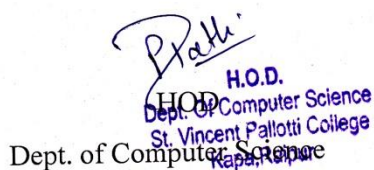 H.O.D.
HOD
Dept. Of Computer Science
St. Vincent Pallotti College
Kapa, Raipur
Dept. of Computer Science